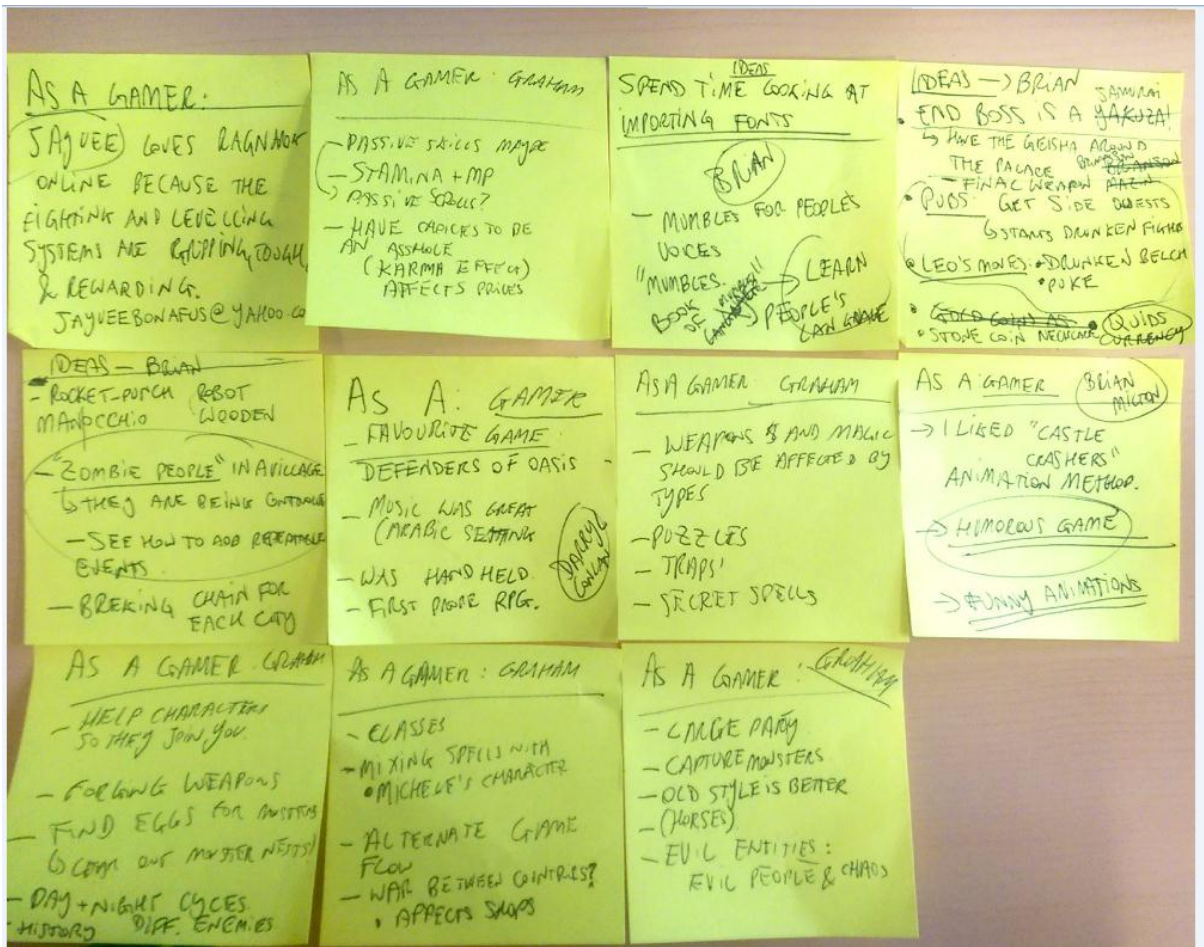 AS A GAMER:
JAYVEE LOVES RAGNAROK
ONLINE BECAUSE THE
FIGHTING AND LEVELLING
SYSTEMS ARE GRIPPING, TOUGH,
& REWARDING.
JAYVEEBONAFUS@YAHOO.CO
AS A GAMER: GRAHAM
- PASSIVE SKILLS MAYBE
- STAMINA + MP
PASSIVE SCROLLS?
- HAVE CHOICES TO BE
AN ASSHOLE
(KARMA EFFECT)
AFFECTS PRICES
IDEAS
SPEND TIME LOOKING AT
IMPORTING FONTS
BRIAN
- MUMBLES FOR PEOPLE'S
VOICES
"MUMBLES."
BOOK OF MUMBLES"
→ LEARN
PEOPLE'S
LANGUAGE
IDEAS → BRIAN
SAMURAI
• END BOSS IS A YAKUZA!
↳ HAVE THE GEISHA AROUND
THE PALACE
- FINAL WEAPON
• PUBS: GET SIDE QUESTS
↳ STARTS DRUNKEN FIGHTS
• LEO'S MOVES: • DRUNKEN BELCH
• PUKE
• GOLD COINS AS
• STONE COIN NECKLACE
• QUIDS
CURRENCY
IDEAS - BRIAN
- ROCKET-PUNCH ROBOT
MANOCCHIO WOODEN
- "ZOMBIE PEOPLE" IN A VILLAGE
↳ THEY ARE BEING
- SEE HOW TO ADD REPEATABLE
EVENTS.
- BREKING CHAIN FOR
EACH CITY
AS A: GAMER
- FAVOURITE GAME:
DEFENDERS OF OASIS
- MUSIC WAS GREAT
(ARABIC SETTING
- WAS HANDHELD.
- FIRST RPG.
DARRYL
AS A GAMER: GRAHAM
- WEAPONS AND MAGIC
SHOULD BE AFFECTED BY
TYPES
- PUZZLES
- TRAPS!
- SECRET SPELLS
AS A GAMER
BRIAN
MILTON
→ I LIKED "CASTLE
CRASHERS"
ANIMATION METHOD.
→ HUMOROUS GAME
→ FUNNY ANIMATIONS
AS A GAMER: GRAHAM
- HELP CHARACTERS
SO THEY JOIN YOU.
- FORGING WEAPONS
- FIND EGGS FOR MONSTERS
↳ CLEAR OUT MONSTER NESTS!
- DAY + NIGHT CYCES.
- HISTORY DIFF. ENEMIES
AS A GAMER: GRAHAM
- CLASSES
- MIXING SPELLS WITH
• MICHELE'S CHARACTER
- ALTERNATE GAME
FLOW
- WAR BETWEEN COUNTRIES?
• AFFECTS SHOPS
AS A GAMER: GRAHAM
- LARGE PARTY
- CAPTURE MONSTERS
- OLD STYLE IS BETTER
- (HORSES)
- EVIL ENTITIES:
EVIL PEOPLE & CHAOS